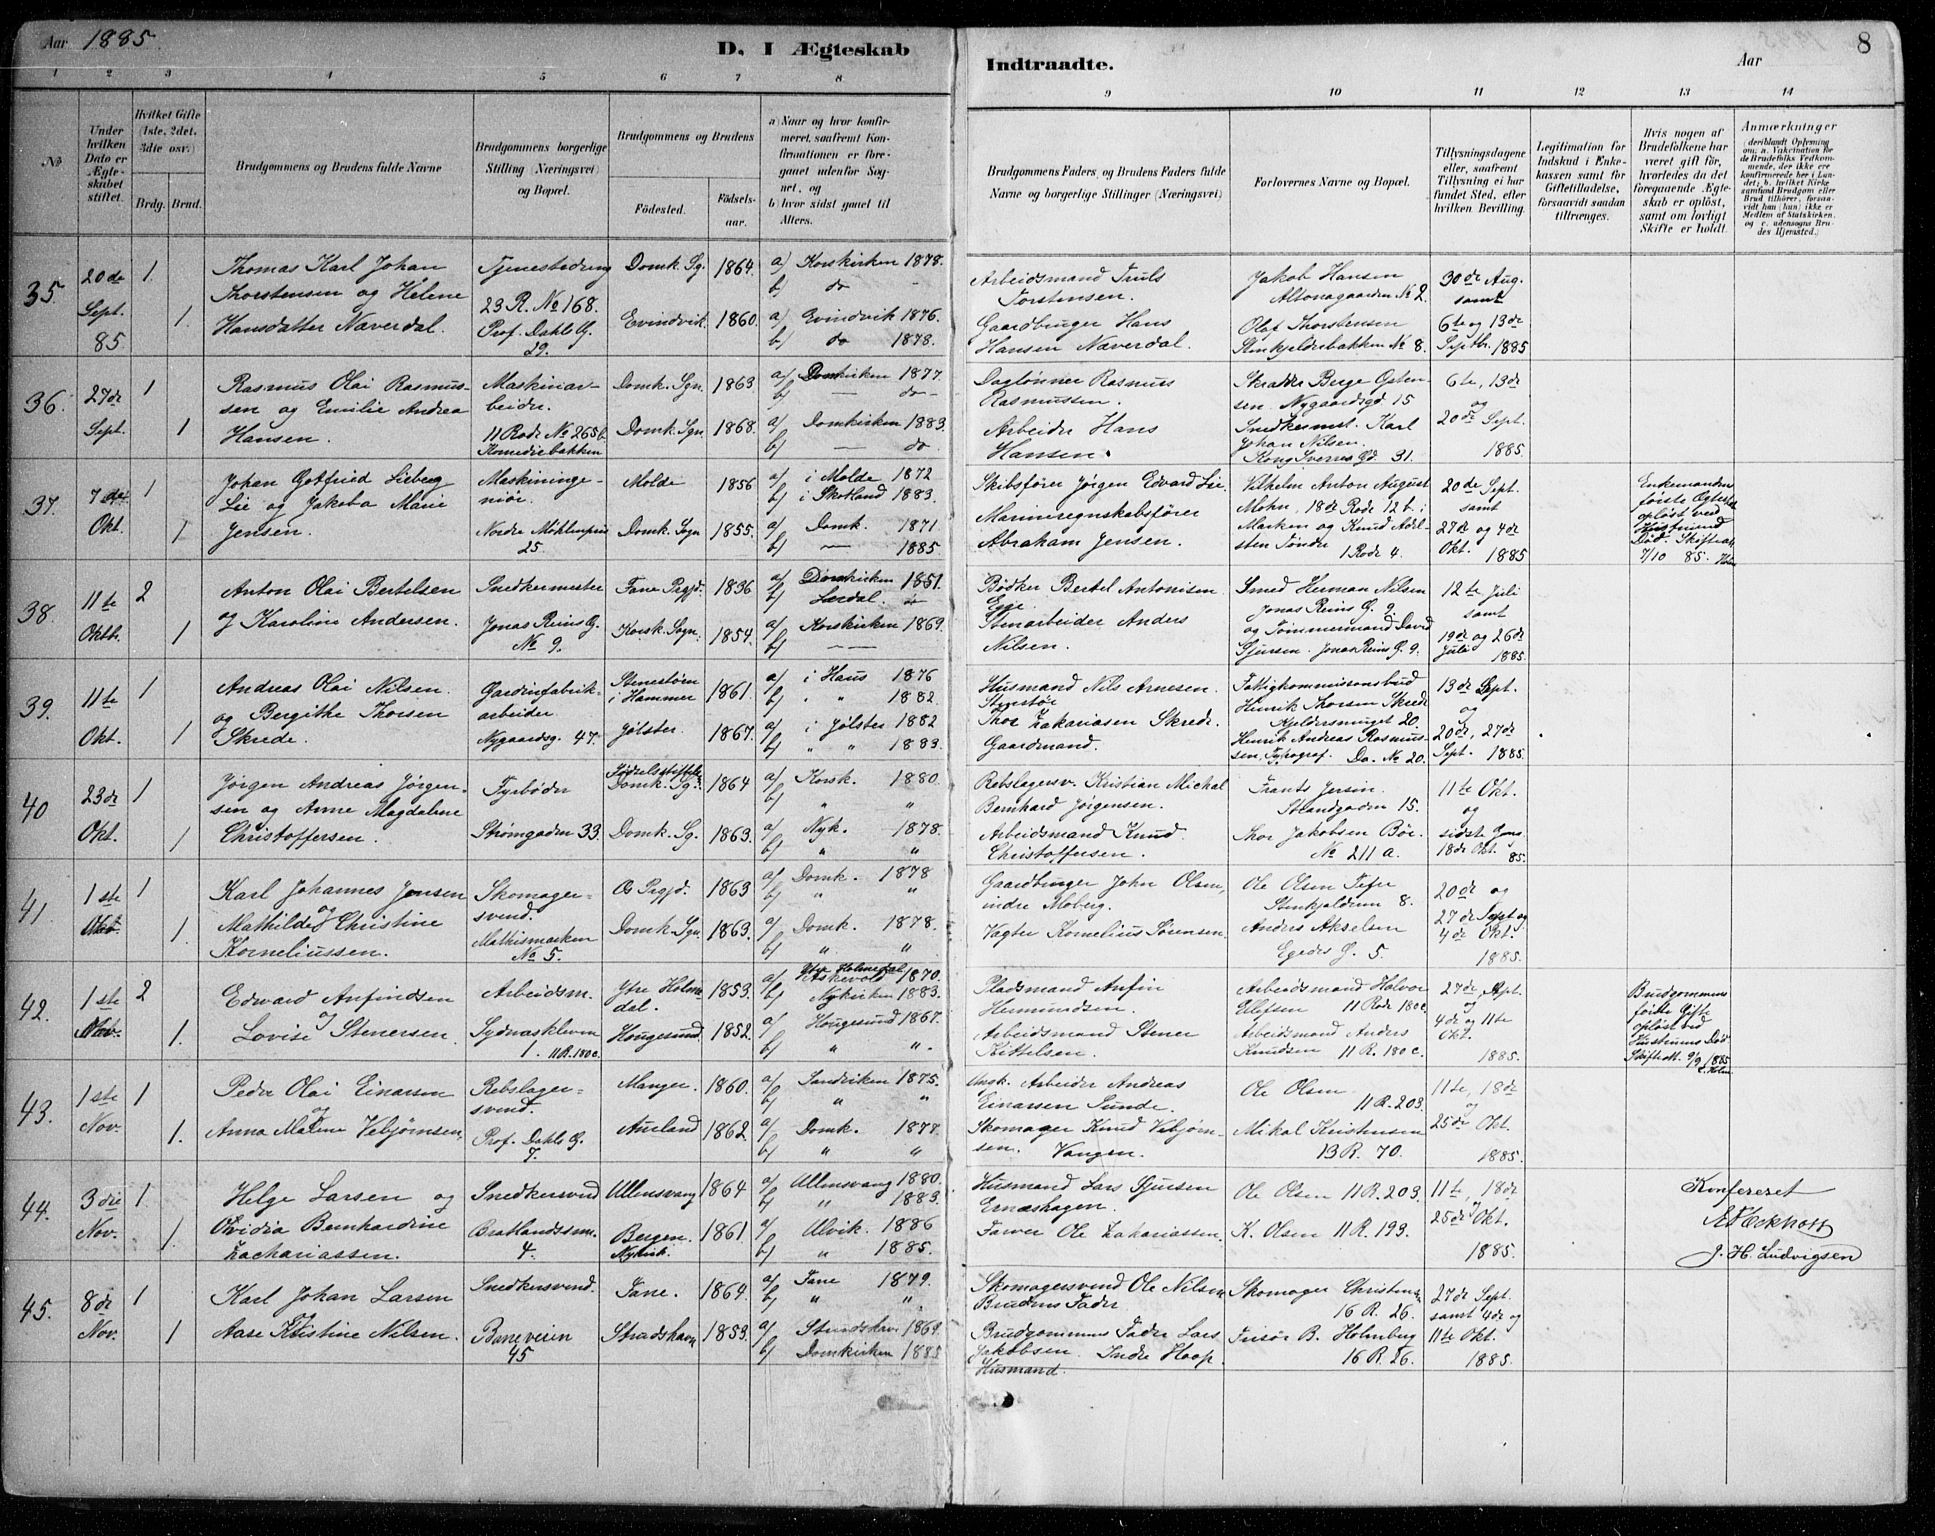 Aar 1885.
D. I Ægteskab
Indtraadte.
Aar
8
1 2 3 4 5 6 7 8 9 10 11 12 13 14
No
Under hvilken Dato er Ægteskabet stiftet.
Hvilket Gifte (1ste, 2det, 3dte osv.)
Brdg. Brud.
Brudgommens og Brudens fulde Navne
Brudgommens borgerlige Stilling (Næringsvei) og Bopæl.
Brudgommens og Brudens
Födested.
Födselsaar.
a) Naar og hvor konfirmeret, saafremt Konfirmationen er foregaaet udenfor Sognet, og
b) hvor sidst gaaet til Alters.
Brudgommens Faders og Brudens Faders fulde Navne og borgerlige Stillinger (Næringsvei)
Forlovernes Navne og Bopæl.
Tillysningsdagene eller, saafremt Tillysning ei har fundet Sted, efter hvilken Bevilling.
Legitimation for Indskud i Enkekassen samt for Giftetilladelse, forsaavidt saadan tiltrænges.
Hvis nogen af Brudefolkene har været gift för, hvorledes da det foregaaende Ægteskab er oplöst, samt om lovligt Skifte er holdt.
Anmærkninger (deriblandt Oplysning om: a. Vakcination for de Brudefolks Vedkommende, der ikke ere konfirmerede her i Landet; b. hvilket Kirkesamfund Brudgom eller Brud tilhörer, forsaavidt han (hun) ikke er Medlem af Statskirken, og c. udensogns Brudes Hjemsted.)
35. 20de Sept. 85 1 1.
Thomas Karl Johan
Thorstensen og Helene
Hansdatter Naverdal.
Tjenestedreng
23 R. No 168.
Prof. Dahls G.
29.
Domk. Sg. 1864. a) Korskirken 1878.
b) do -
Evindvik 1860. a) Evindvik 1876.
b) do 1878.
Arbeidsmand Truls
Torstensen.
Gaardbruger Hans
Hansen Næverdal.
Jakob Hansen
Altonagaarden No 2.
Olaf Thorstensen
Stenkjeldrebakken No 8.
30de Aug.
samt
6te og 13de
Septbr. 1885
36. 27de Sept. 1 1
Rasmus Olai Rasmus-
sen og Emilie Andrea
Hansen.
Maskinar-
beider.
11 Rode No 265b.
Komediebakken
Domk. Sgn. 1863 a) Domkirken 1877.
b) — do -
Domk. Sgn. 1868. a) Domkirken 1883.
b) — do
Daglønner Rasmus
Rasmussen.
Arbeider Hans
Hansen.
Skrædder Berge Osten-
sen. Nygaardsgd 15
Snedkermst. Karl
Johan Nilsen.
Kong Sverres Gd. 31.
6te, 13de
og
20de Sept.
1885.
37. 7de Okt. 1 1
Johan Gotfried Lieberg
Lie og Jakoba Marie
Jensen.
Maskininge-
niør.
Nordre
25.
Molde 1856 a) i Molde 1872
b) i Skotland 1883.
Domk. Sogn 1855. a) Domk. 1871
b) — 1885.
Skibsfører Jørgen Edvard Lie
Marineregnskabsfører
Abraham Jensen.
Vilhelm Anton August
Mohn, 18de Rode 12 b. i
Marken og Knud Adel-
sten Tønder
1 Rode 4.
20de Sept.
samt
27de og 4de
Okt. 1885
Enkemanden
første Ægteskab
opløst ved
Hustruens
Død. Skifteatt.
7/10 85. Holm
38. 11te Oktb. 2 1
Anton Olai Bertelsen
og Karoline Andersen.
Snedkermester
Jonas Reins G.
No 9.
Fane Prgjd. 1836 a) Domkirken 1851.
b) Lærdal. do
Korsk. Sogn. 1854. a) Korskirken 1869.
b) ——
Bødker Bertel Antonisen
Egge.
Stenarbeider Anders
Nilsen.
Smed Herman Nilsen
Jonas Reins G. 9.
og Tømmermand David
Sjursen. Jonas Reins G. 9.
12te Juli
samt
19de og 26de
Juli 1885.
39. 11te Okt. 1 1
Andreas Olai Nilsen.
og Bergithe Thorsen
Skrede.
Gardinfabrik-
arbeider
Nygaardsg. 47.
Stenestøen
i Hammer 1861 a) i Haus 1876
b) " 1882.
Jølster 1867. a) i Jølster 1882
b) " " 1883.
Husmand Nils Arnesen.
Stenstøe
Thor Zakariasen Skrede.
Gaardmand.
Fattigkommissionsbud
Henrik Thorsen Skrede
20.
Henrik Andreas Rasmus-
sen, Typograf. Do. No 20.
13de Sept.
og
20de, 27de
Sept. 1885.
40 23de Okt. 1 1
Jørgen Andreas Jørgen-
sen og Anne Magdalene
Christoffersen.
Fyrbøder
Strømgaden 33.
Fødselsstiftels
Domk. Sg. 1864 a) Korsk. 1880.
b) " "
Domk. Sg. 1863. a) Nyk. 1878.
b) " "
Rebslagersv. Kristian Michal
Bernhard Jørgensen.
Arbeidsmand Knud
Christoffersen.
Frants Jersin
Strandgaden 15.
Thor Jakobsen Bøe.
No 211 a.
11te Okt.
og
sidste Gang
18de Okt. 85.
41. 1ste Okt. 1 1.
Karl Johannes Jonsen
og
Mathilde Christine
Korneliussen.
Skomager-
svend.
Mathismarken
No 5.
Os Prgjd. 1863 a) Domk. 1878
b) " "
Domk. Sgn. 1863. a) Domk. 1878.
b) " "
Gaardbruger John Olsen,
indre Moberg.
Vægter Kornelius Sørensen
Ole Olsen
Stenkjeldrun 8.
Anders Akselsen
Egedes G. 5.
20de og
27de Sept og
4de Okt.
1885.
42. 1ste Nov. 2 1.
Edvard Anfindsen
og
Lovise Stenersen.
Arbeidsm.
Sydnæskleven
1. 11 R. 180c.
Ytre Holme-
dal. 1853. a) Ytre Holmedal Askevold 1870.
b) Nykirken 1883.
Hougesund. 1852. a) Hougesund 1867.
b) " "
Pladsmand Anfin
Hermundsen.
Arbeidsmand Stener
Kittelsen.
Arbeidsmand Halvor
Ellefsen 11 Rode 180c.
Arbeidsmand Anders
Knudsen 11 R. 180c.
27de Sept.
og
4de og 11te
Okt.
1885.
Brudgommens
første Gifte
opløst ved
Hustruens Død
Skifteatt. 9/9 1885
Holm
43. 1ste Nov. 1 1.
Peder Olai Einarsen
og
Anna Malene Vebjørnsen.
Rebslager-
svend.
Prof. Dahls G.
7.
Manger. 1860. a) Sandviken 1875.
b) " "
Aurland 1862. a) Domk. 1877.
b) " "
Ungk. Arbeider Andreas
Einarsen Sunde.
Skomager Knud Vebjørn-
sen. Vangen.
Ole Olsen
11 R. 203.
Mikal Kristensen
13 R. 70.
11te, 18de
og
25de Okt.
1885.
44. 3die Nov. 1. 1.
Helge Larsen og
Ovidia Bernhardine
Zachariassen.
Snedkersvend
4.
Ullensvang 1864 a) Ullensvang 1880.
b) " 1883.
Bergen.
Nykirk. 1861 a) Ulvik. 1886
b) " 1885.
Husmand Lars Sjursen
Ernæshagen.
Farver Ole Zakariassen.
Ole Olsen 11 R. 203.
K. Olsen 11 R. 193.
11te, 18de
25de Okt.
1885.
Konfereret
J. H. Ludvigsen
45. 8de Nov. 1 1
Karl Johan Larsen
og
Aase Kristine Nilsen.
Snedkersvend.
45
Fane. 1864. a) Fane 1879.
b) " ".
Strudshavn 1853. a) Strudshav. 1869.
b) Domkirken 1885
Skomagersvend Ole Nilsen
Brudens Fader
Brudgommens Fader Lars
Jakobsen. Indre Hoop.
Husmand.
Skomager Christensen
16 R. 26.
Frisør B. Holmberg
16 R. 26.
27de Sept.
samt 4de og
11te Okt.
1885.